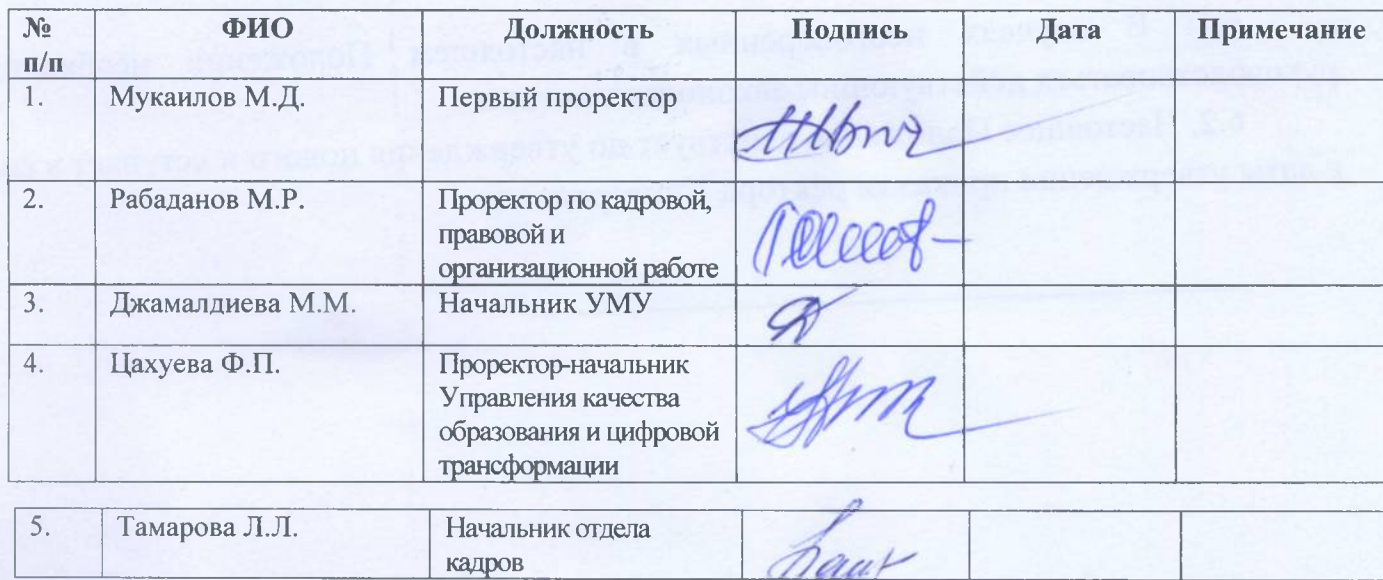 № п/п ФИО Должность Подпись Дата Примечание
1. Мукаилов М.Д. Первый проректор
2. Рабаданов М.Р. Проректор по кадровой,
правовой и
организационной работе
3. Джамалдиева М.М. Начальник УМУ
4. Цахуева Ф.П. Проректор-начальник
Управления качества
образования и цифровой
трансформации
5. Тамарова Л.Л. Начальник отдела
кадров